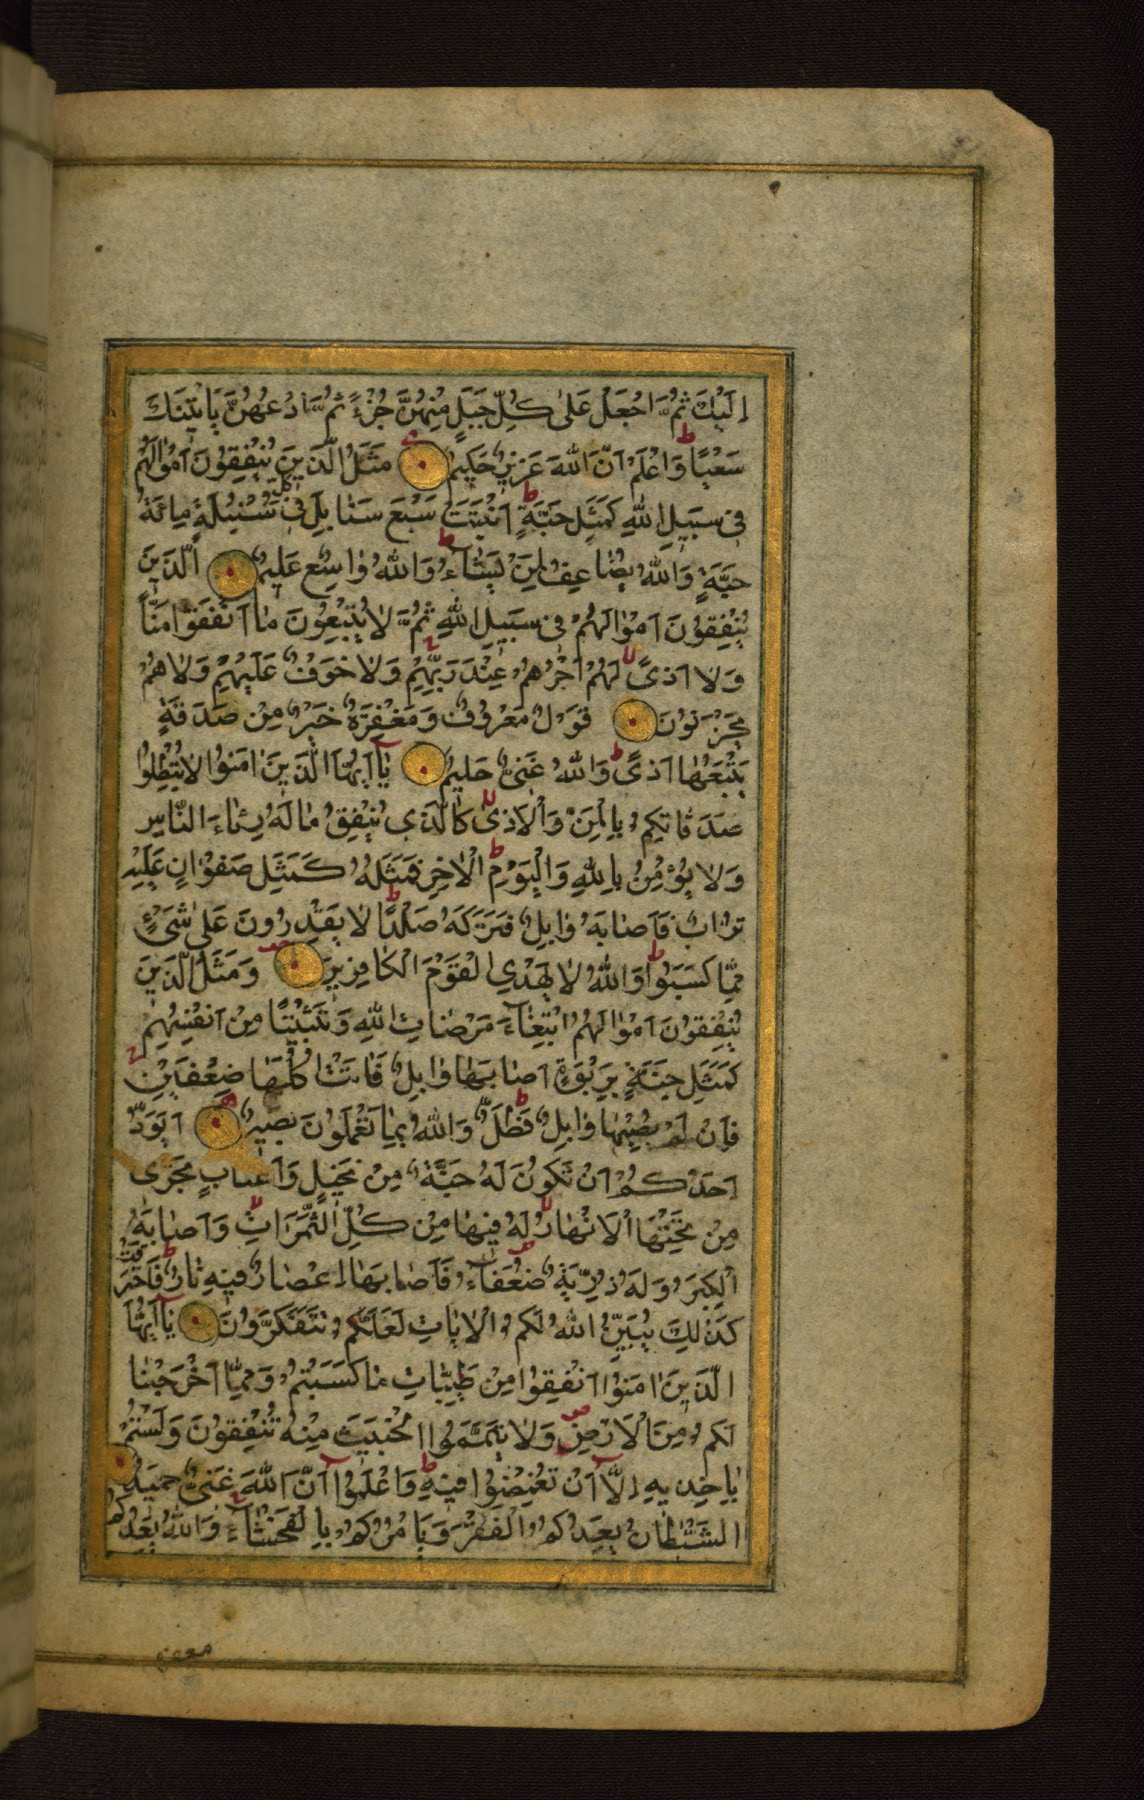 اِلَيْكَ ثُمَّ اجْعَلْ عَلٰى كُلِّ جَبَلٍ مِنْهُنَّ جُزْءً ثُمَّ ادْعُهُنَّ يَاْتِينَكَ
سَعْيًا وَاعْلَمْ اَنَّ اللهَ عَزِيزٌ حَكِيمٌ مَثَلُ الَّذِينَ يُنْفِقُونَ اَمْوٰالَهُمْ
فِى سَبِيلِ اللهِ كَمَثَلِ حَبَّةٍ اَنْبَتَتْ سَبْعَ سَنٰابِلَ فِى كُلِّ سُنْبُلَةٍ مِائَةُ
حَبَّةٍ وَاللهُ يُضٰاعِفُ لِمَنْ يَشٰاءُ وَاللهُ وٰاسِعٌ عَلِيمٌ اَلَّذِينَ
يُنْفِقُونَ اَمْوٰالَهُمْ فِى سَبِيلِ اللهِ ثُمَّ لٰا يُتْبِعُونَ مٰا اَنْفَقُوا مَنًّا
وَلٰا اَذىً لَهُمْ اَجْرُهُمْ عِنْدَ رَبِّهِمْ وَلٰا خَوْفٌ عَلَيْهِمْ وَلٰا هُمْ
يَحْزَنُونَ قَوْلٌ مَعْرُوفٌ وَمَغْفِرَةٌ خَيْرٌ مِنْ صَدَقَةٍ
يَتْبَعُهٰا اَذىً وَاللهُ غَنِىٌّ حَلِيمٌ يٰا اَيُّهَا الَّذِينَ اٰمَنُوا لٰا تُبْطِلُوا
صَدَقٰاتِكُمْ بِالْمَنِّ وَالْاَذىٰ كَالَّذِى يُنْفِقُ مٰالَهُ رِئٰاءَ النّٰاسِ
وَلٰا يُؤْمِنُ بِاللهِ وَالْيَوْمِ الْاٰخِرِ فَمَثَلُهُ كَمَثَلِ صَفْوٰانٍ عَلَيْهِ
تُرٰابٌ فَاَصٰابَهُ وٰابِلٌ فَتَرَكَهُ صَلْدًا لٰا يَقْدِرُونَ عَلٰى شَىْءٍ
مِمّٰا كَسَبُوا وَاللهُ لٰا يَهْدِى الْقَوْمَ الْكٰافِرِينَ وَمَثَلُ الَّذِينَ
يُنْفِقُونَ اَمْوٰالَهُمُ ابْتِغٰاءَ مَرْضٰاتِ اللهِ وَتَثْبِيتًا مِنْ اَنْفُسِهِمْ
كَمَثَلِ جَنَّةٍ بِرَبْوَةٍ اَصٰابَهٰا وٰابِلٌ فَاٰتَتْ اُكُلَهٰا ضِعْفَيْنِ
فَاِنْ لَمْ يُصِبْهٰا وٰابِلٌ فَطَلٌّ وَاللهُ بِمٰا تَعْمَلُونَ بَصِيرٌ اَيَوَدُّ
اَحَدُكُمْ اَنْ تَكُونَ لَهُ جَنَّةٌ مِنْ نَخِيلٍ وَاَعْنٰابٍ تَجْرِى
مِنْ تَحْتِهَا الْاَنْهٰارُ لَهُ فِيهٰا مِنْ كُلِّ الثَّمَرٰاتِ وَاَصٰابَهُ
الْكِبَرُ وَلَهُ ذُرِّيَّةٌ ضُعَفٰاءُ فَاَصٰابَهٰا اِعْصٰارٌ فِيهِ نٰارٌ فَاحْتَرَقَتْ
كَذٰلِكَ يُبَيِّنُ اللهُ لَكُمُ الْاٰيٰاتِ لَعَلَّكُمْ تَتَفَكَّرُونَ يٰا اَيُّهَا
الَّذِينَ اٰمَنُوا اَنْفِقُوا مِنْ طَيِّبٰاتِ مٰا كَسَبْتُمْ وَمِمّٰا اَخْرَجْنٰا
لَكُمْ مِنَ الْاَرْضِ وَلٰا تَيَمَّمُوا الْخَبِيثَ مِنْهُ تُنْفِقُونَ وَلَسْتُمْ
بِاٰخِذِيهِ اِلّٰا اَنْ تُغْمِضُوا فِيهِ وَاعْلَمُوا اَنَّ اللهَ غَنِىٌّ حَمِيدٌ
الشَّيْطٰانُ يَعِدُكُمُ الْفَقْرَ وَيَاْمُرُكُمْ بِالْفَحْشٰاءِ وَاللهُ يَعِدُكُمْ